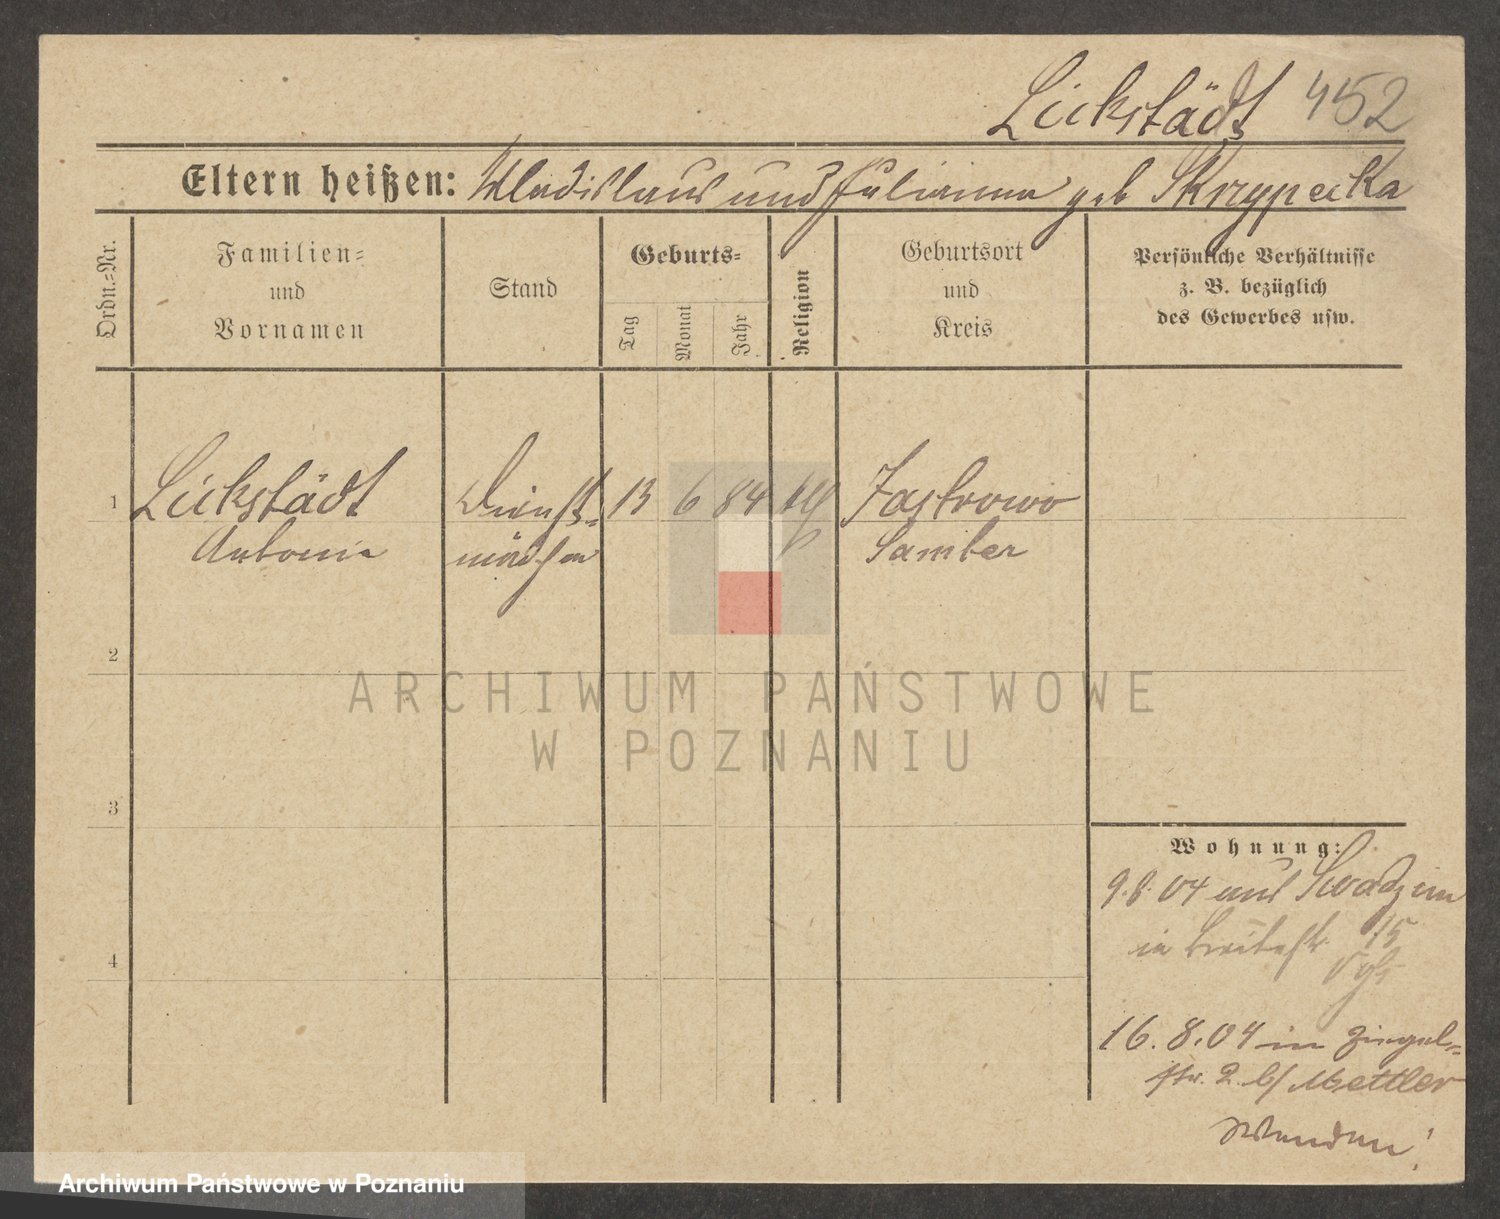 Lickstädt 452
Eltern heißen: Wladislaus und Julianna geb Skrzypecka
Ordn.-Nr.
Familien-
und
Vornamen
Stand
Geburts-
Tag
Monat
Jahr
Religion
Geburtsort
und
Kreis
Persönliche Verhältnisse
z. B. bezüglich
des Gewerbes usw.
1 Lickstädt Dienst- 13 6 84 Jastrowo
Antonie mädchen Samter
2
3
4
ARCHIWUM PAŃSTWOWE
W POZNANIU
Wohnung:
9.8.04 aus Swadzim
in Breitestr. 15
16.8.04 in Ziegel-
str. 2 b/ Mettler
Wenden!
Archiwum Państwowe w Poznaniu